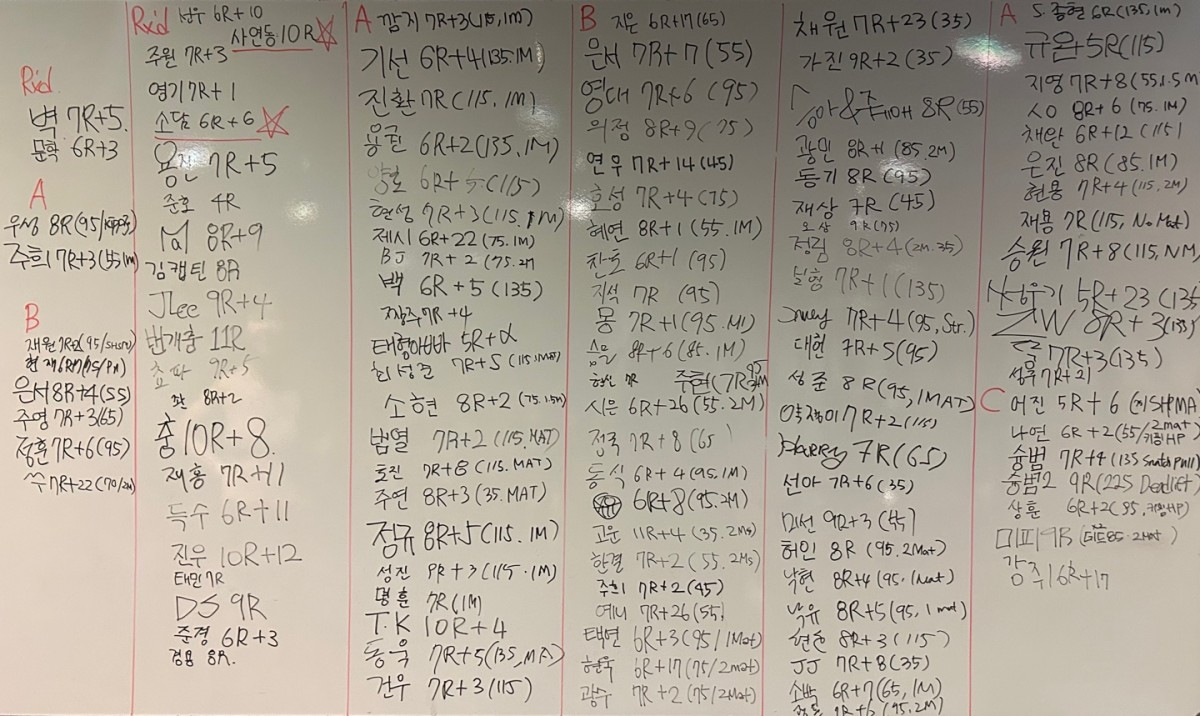 Rxd
벽 7R+5.
문학 6R+3
A
우성 8R(95/
주희 7R+3(
B
재원 7R+2(95/
은서 8R+4(55)
주영 7R+3(65)
정훈 7R+6(95)
7R+22(70/2M)
Rxd 선우 6R+10
사연동 10R
주원 7R+3
영기 7R+1
소담 6R+6
용진 7R+5
준호 4R
Mal 8R+9
김캡틴 8R
JLee 9R+4
번개춤 11R
쵸파 9R+5
좐 8R+2
춤 10R+8.
재홍 7R+11
득수 6R+11
진우 10R+12
태민 7R
DS 9R
준경 6R+3
경용 8R.
A 깜지 7R+3(115, 1M)
기선 6R+4(135.1M)
진환 7R(115.1M)
용균 6R+2(135.1M)
양호 6R+5(115)
현성 7R+3(115.1M)
제시 6R+22(75.1M)
BJ 7R+2(75.2M
백 6R+5(135)
짜장주 7R+4
태형아빠 5R+α
최성준 7R+5(115.1MAT)
소현 8R+2(75.15M)
범열 7R+2(115.MAT)
효진 7R+8(115.MAT)
주연 8R+3(35.MAT)
정규 8R+5(115.1M)
성진 9R+3(115.1M)
명훈 7R(1M)
T.K 10R+4
동욱 7R+5(135,MA)
건우 7R+3(115)
B 지은 6R+17(65)
은서 7R+7(55)
영대 7R+6(95)
의정 8R+9(75)
연우 7R+14(45)
효성 7R+4(75)
혜연 8R+1(55.1M)
찬호 6R+1(95)
지석 7R(95)
몽 7R+1(95.M1)
승문 8R+6(85.1M)
7R 주현(7R
시은 6R+26(55.2M)
정국 7R+8(65)
동식 6R+4(95.1M)
6R+8(95.2M)
고운 11R+4(35.2Ms)
한결 7R+2(55.2Ms)
주희 7R+2(45)
예니 7R+26(55)
태연 6R+3(95/1Mat)
현욱 6R+17(75/2mat)
광수 7R+2(75/2Mat)
채원 7R+23(35)
가진 9R+2(35)
8R(55)
광민 8R+1(85.2M)
동기 8R(95)
재상 7R(45)
오상 9R(75)
정림 8R+4(2m.35)
보형 7R+1(135)
7R+4(95,Str.)
대현 7R+5(95)
성준 8R(95,1MAT)
약쟁이 7R+2(115)
Harry 7R(65)
선아 7R+6(35)
미선 9R+3(
허인 8R(95.2Mat)
낙현 8R+4(95.1Mat)
낙유 8R+5(95,1mat)
현준 8R+3(115)
JJ 7R+8(35)
소박 6R+7(65,1M)
9R+6(95.2M)
A S.종현 6R(135,1m)
규온 5R(115)
지영 7R+8(55,1.5M
8R+6(75.1M)
채완 6R+12(115)
은진 8R(85.1M)
현용 7R+4(115,2M)
재용 7R(115,No Mat)
승원 7R+8(115,NM)
5R+23(135
ZW 8R+3(135)
7R+3(135)
성우 7R+21
C 어진 5R+6
나연 6R+2(55/2mat/키핑HP
승범 7R+4(135 Snatch Pull)
승범2 9R(225 Deadlift)
상훈 6R+2(85,키핑HP)
미피 9R(데드85.2mat)
강주 16R+17